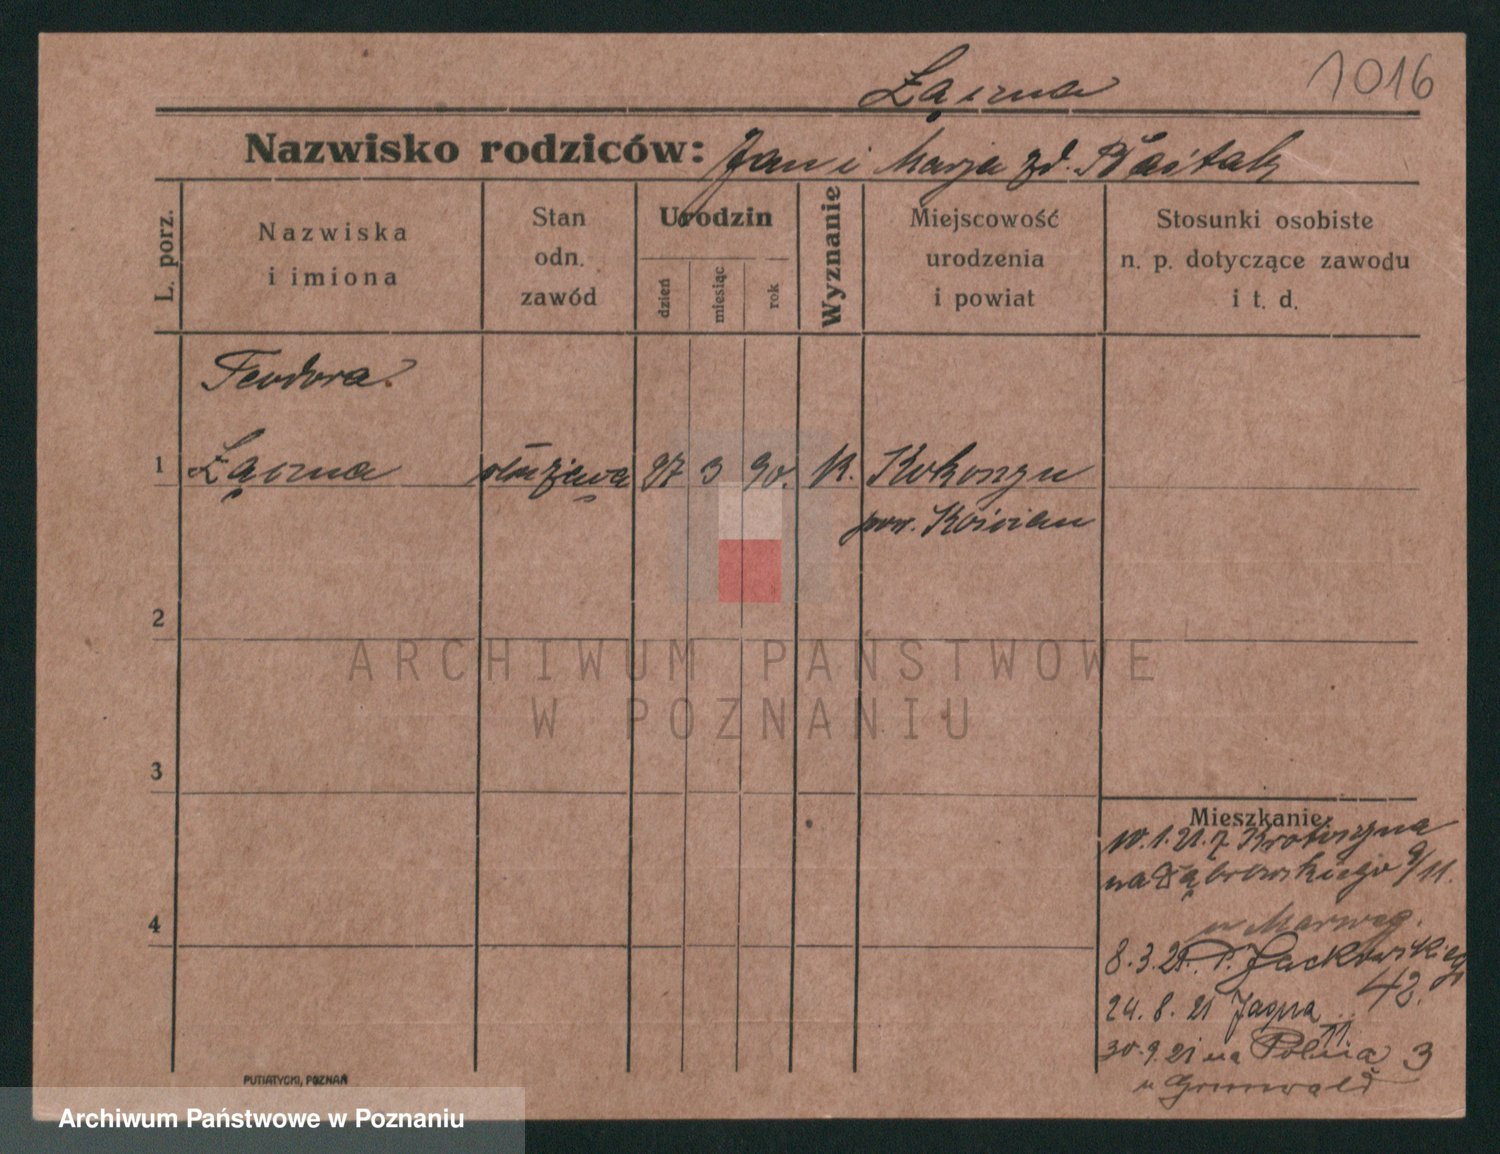 Łączna
1016
Nazwisko rodziców: Jan i Marja zd.
L. porz.
Nazwiska
i imiona
Stan
odn.
zawód
Urodzin
dzień
miesiąc
rok
Wyznanie
Miejscowość
urodzenia
i powiat
Stosunki osobiste
n. p. dotyczące zawodu
i t. d.
Teodora
1 Łączna służąca 27 3 90. K. Kokorzyn
pow. Kościan
2
3
4
ARCHIWUM PAŃSTWOWE
W POZNANIU
Mieszkanie:
10.1.21. z Krotoszyna
na Dąbrowskiego 9/11.
u
8.3.21. P. Jackowskiego
42.
24.8.21 Jasna 11
30.9.21 na Polna 3
u Grunwald
PUTIATYCKI, POZNAŃ
Archiwum Państwowe w Poznaniu